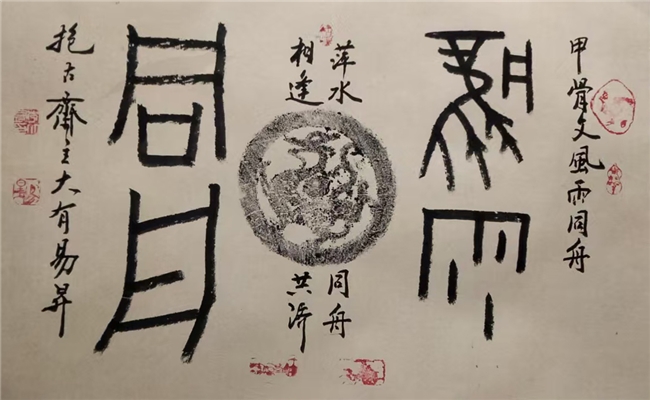 甲骨文風雨同舟
風雨
萍水
相逢
同舟
共济
同舟
抱古齋主大有易昇